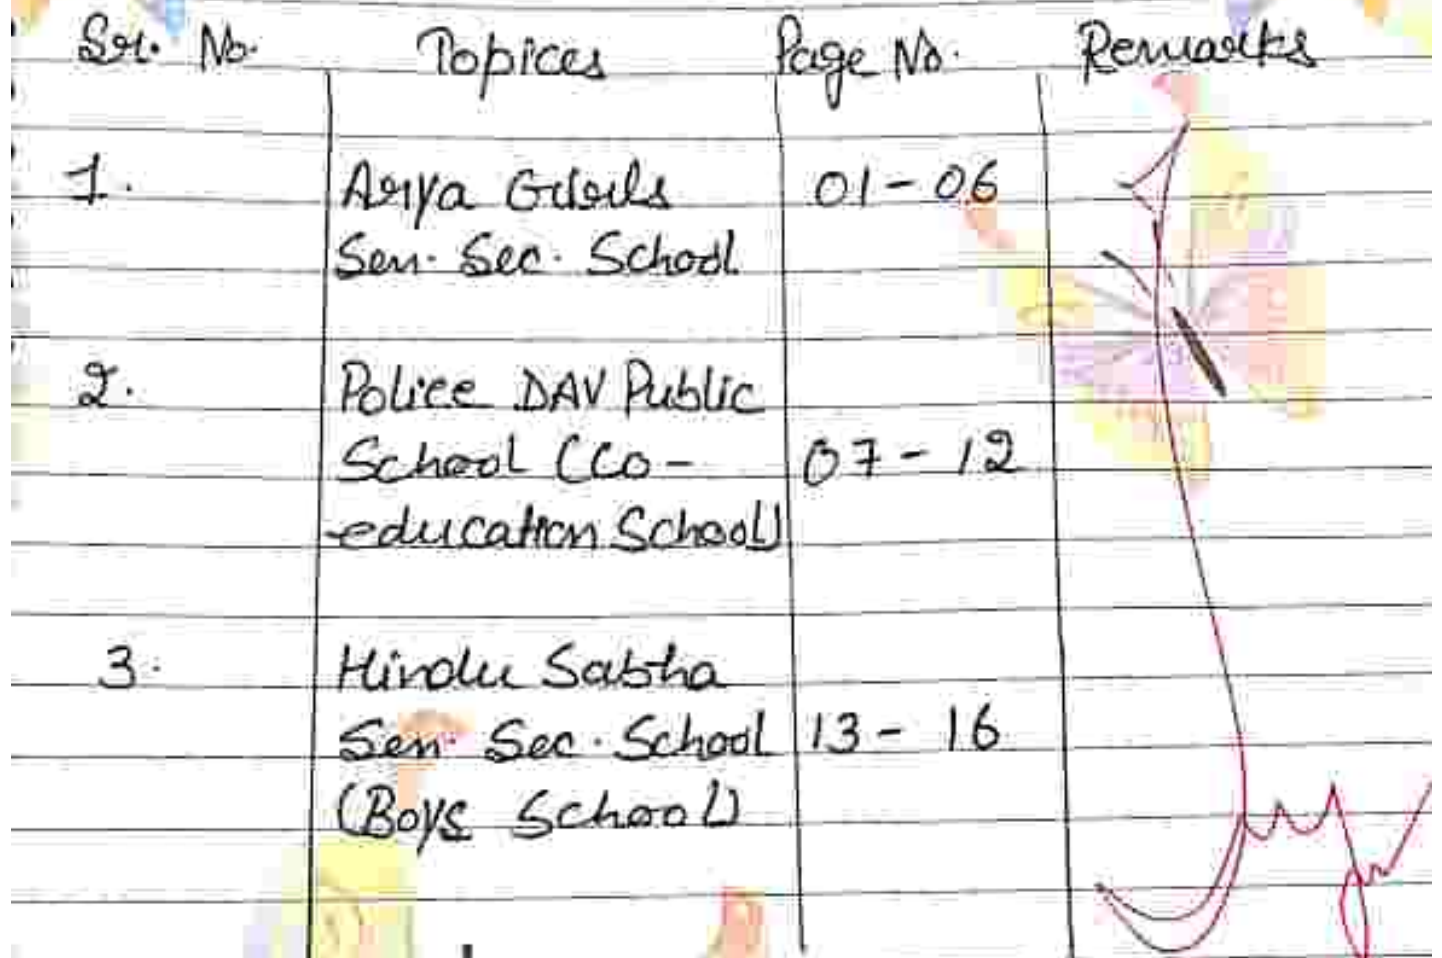 Sr. No. Topices Page No. Remarks
1. Arya Girls 01 - 06
Sen. Sec. School
2. Police DAV Public
School (Co- 07 - 12
-education School)
3. Hindu Sabha
Sen. Sec. School 13 - 16
(Boys School)